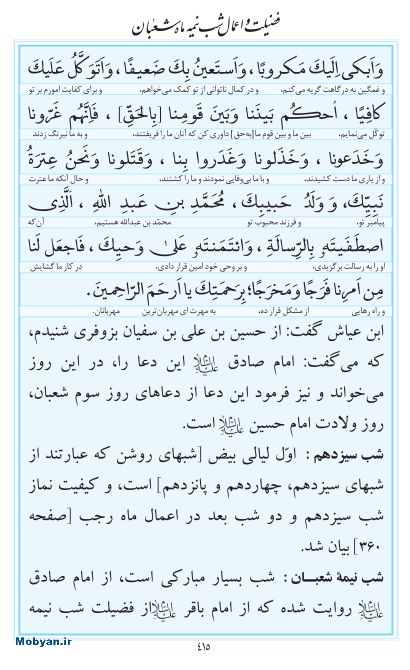 فضیلت و اعمال شب نیمه ماه شعبان
وَاَبكى اِلَيكَ مَكروبًا، وَاَستَعينُ بِكَ ضَعيفًا، وَاَتَوَكَّلُ عَلَيكَ
و غمگین به درگاهت گریه می‌کنم، و در کمال ناتوانی از تو کمک می‌خواهم، و برای کفایت امورم بر تو
كافِيًا ، اُحكُم بَينَنا وَبَينَ قَومِنا [بِالحَقِّ] ، فَاِنَّهُم غَرّونا
توکّل می‌نمایم. بین ما و بین قوم ما [به‌حق] داوری کن که آنان ما را فریفتند، و به ما نیرنگ زدند
وَخَدَعونا ، وَخَذَلونا وَغَدَروا بِنا ، وَقَتَلونا وَنَحنُ عِترَةُ
و از یاری ما دست کشیدند، و با ما بی‌وفایی نمودند و ما را کشتند، و حال آنکه ما عترت
نَبِيِّكَ، وَ وَلَدُ حَبيبِكَ، مُحَمَّدِ بنِ عَبدِ اللّٰهِ ، اَلَّذِى
پیامبر تو، و فرزند محبوب تو محمّد بن عبدالله هستیم، آن‌که
اصطَفَيتَهُ بِالرِّسالَةِ، وَائتَمَنتَهُ عَلىٰ وَحيِكَ، فَاجعَل لَنا
او را به رسالت برگزیدی، و بر وحی خود امین قرار دادی، در کار ما گشایش
مِن اَمرِنا فَرَجًا وَمَخرَجًا؛ بِرَحمَتِكَ يا اَرحَمَ الرّاحِمينَ.
و راه رهایی از مشکل قرار ده، به مهرت ای مهربان‌ترین مهربانان.
ابن عیاش گفت: از حسین بن علی بن سفیان بزوفری شنیدم،
که می‌گفت: امام صادق علیه‌السلام این دعا را، در این روز
می‌خواند و نیز فرمود این دعا از دعاهای روز سوم شعبان،
روز ولادت امام حسین علیه‌السلام است.
شب سیزدهم : اوّل لیالی بیض [شبهای روشن که عبارتند از
شبهای سیزدهم، چهاردهم و پانزدهم] است، و کیفیت نماز
شب سیزدهم و دو شب بعد در اعمال ماه رجب [صفحه
۳۶۰] بیان شد.
شب نیمهٔ شعبـان: شب بسیار مبارکی است، از امام صادق
علیه‌السلام روایت شده که از امام باقر علیه‌السلام از فضیلت شب نیمه
Mobyan.ir
۴۱۵